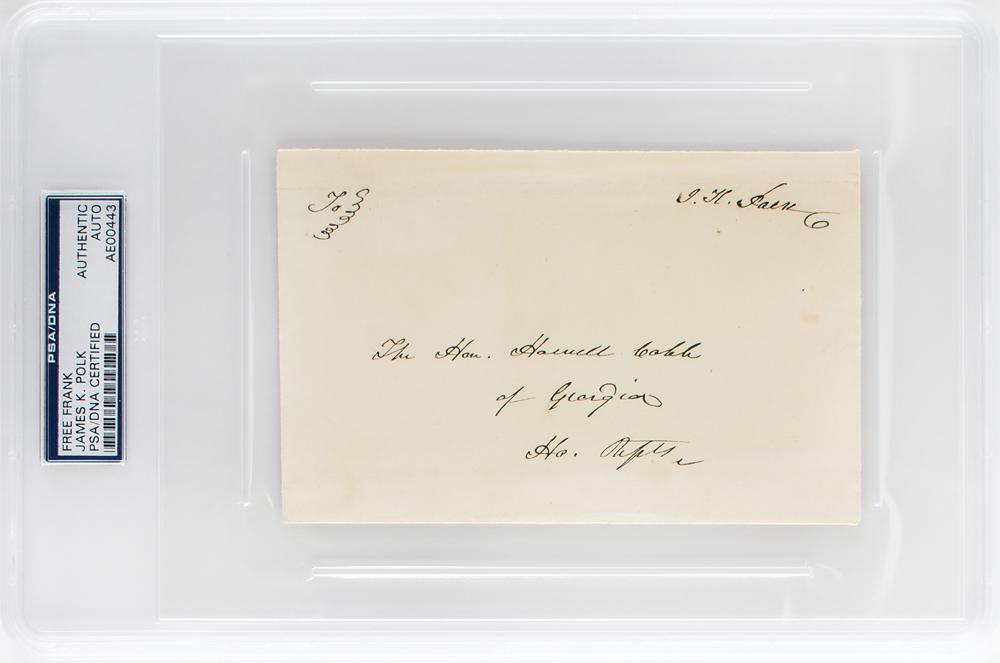 PSA/DNA
FREE FRANK
JAMES K. POLK
PSA/DNA CERTIFIED
AUTHENTIC
AUTO
AE00443
To
J. K. Polk
The Hon. Howell Cobb
of Georgia
Ho. Repts